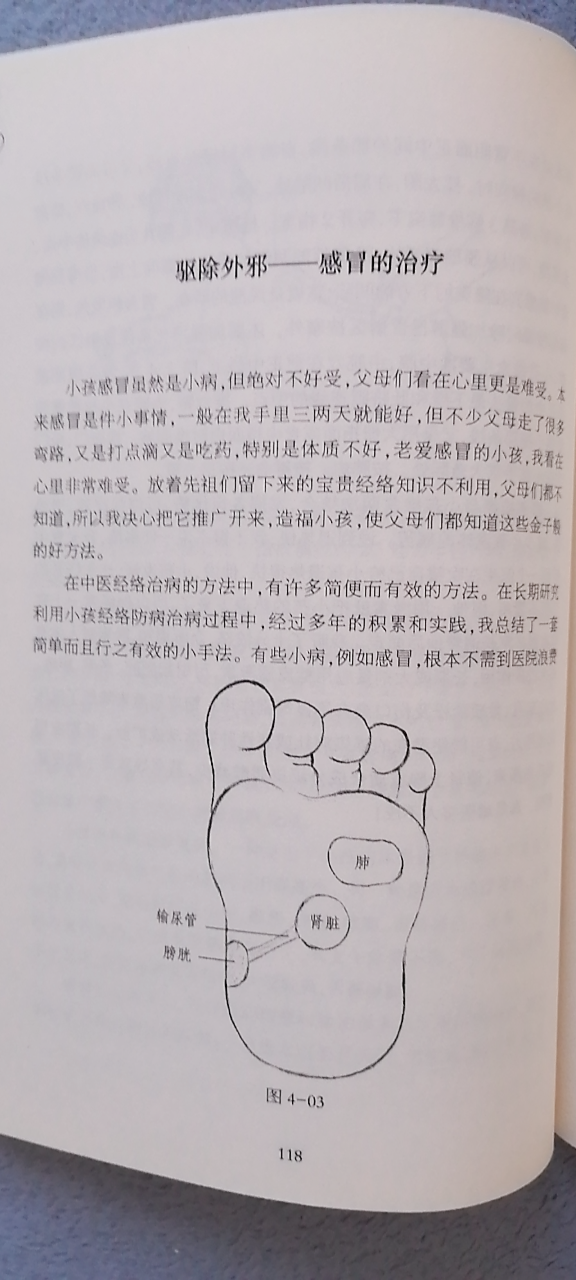 驱除外邪——感冒的治疗
小孩感冒虽然是小病,但绝对不好受,父母们看在心里更是难受。本
来感冒是件小事情,一般在我手里三两天就能好,但不少父母走了很多
弯路,又是打点滴又是吃药,特别是体质不好,老爱感冒的小孩,我看在
心里非常难受。放着先祖们留下来的宝贵经络知识不利用,父母们都不
知道,所以我决心把它推广开来,造福小孩,使父母们都知道这些金子般
的好方法。
在中医经络治病的方法中,有许多简便而有效的方法。在长期研究
利用小孩经络防病治病过程中,经过多年的积累和实践,我总结了一套
简单而且行之有效的小手法。有些小病,例如感冒,根本不需到医院浪费
肺
输尿管
肾脏
膀胱
图 4-03
118